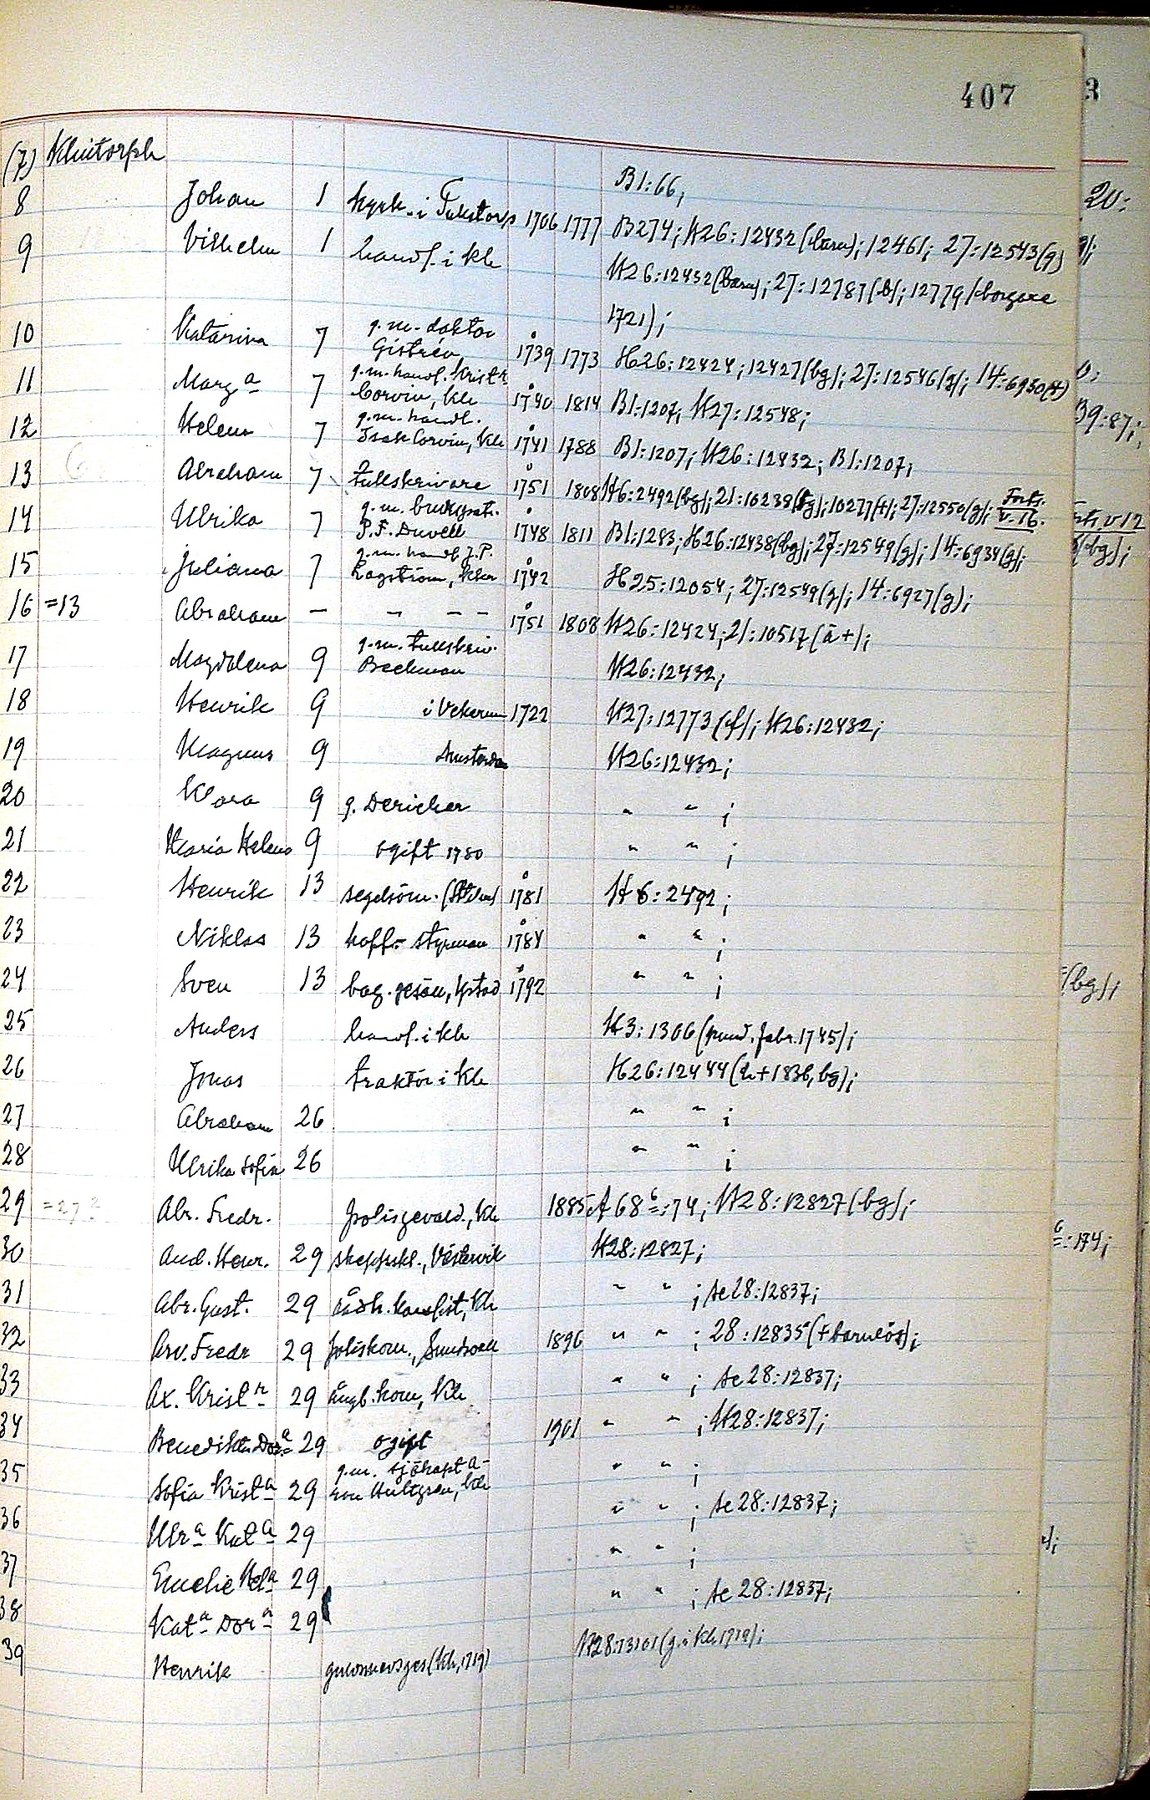 407
(7) Klintorph
B1:66;
8 Johan 1 kyrk. i Tukstorp 1706 1777 B274; H26:12432 (barn); 12461; 27:12543(g)
9 Vilhelm 1 handl. i Kh H26:12432(barn); 27:12787(b); 12779 (borgare
1721);
10 Katarina 7 g.m. doktor
Giström 1739 1773 H26:12424; 12427(bg); 27:12546(g); 14:6930(+)
11 Marg.a 7 g.m. handl. Krist.r
Corvin, Kh 1740 1814 B1:1207; H27:12548;
12 Helena 7 g.m. handl.
Isak Corvin, Kh 1741 1788 B1:1207; H26:12432; B1:1207;
13 Abraham 7 tullskrivare 1751 1808 H6:2492(bg); 21:10239(bg); 10277(+); 27:12550(g); Forts. v. 16.
14 Ulrika 7 g.m.
P.F. Duvell 1748 1811 B1:1283; H26:12438(bg); 27:12549(g); 14:6934(g);
15 Juliana 7 g.m. handl. J.P.
Lagström, Khn 1742 H25:12054; 27:12549(g); 14:6927(g);
16 =13 Abraham – – – – 1751 1808 H26:12424; 21:10517(ä+);
17 Magdalena 9 g.m. tullskriv.
Beckman H26:12432;
18 Henrik 9 i Vekerum 1722 H27:12773(f); H26:12432;
19 Magnus 9 Amsterdam H26:12432;
20 Klara 9 g. Dericher " " ;
21 Maria Helena 9 ogift 1780 " " ;
22 Henrik 13 segelsöm. (Sthlm) 1781 H6:2492;
23 Niklas 13 koff.- styrman 1784 " " ;
24 Sven 13 bag. gesäll, Ystad 1792 " " ;
25 Anders handl. i Kh H3:1306 (pund. fabr. 1745);
26 Jonas traktör i Kh H26:12444 (h+1836, bg);
27 Abraham 26 " " ;
28 Ulrika Sofia 26 " " ;
29 =27? Abr. Fredr. polisgevald., Kh 1885 A 68 6:74; H28:12827(bg);
30 And. Henr. 29 skeppskl., Västervik H28:12827;
31 Abr. Gust. 29 rådh. kanslist, Kh " " ; Ae28:12837;
32 Arv. Fredr 29 poliskom., Sundsvall 1896 " " ; 28:12835 (+barnlös);
33 Ax. Krist.n 29 ångb. kom, Kh " " ; Ae28:12837;
34 Benedikta Dor.a 29 ogift 1901 " " ; H28:12837;
35 Sofia Krist.a 29 g.m. sjökapt A-
ron Hultgren, Kh " " ;
36 Ulr.a Kat.a 29 " " ; Ae28:12837;
37 Emelie Hel.a 29 " " ;
38 Kat.a Dor.a 29 " " ; Ae28:12837;
39 Henrik guldsmedsges (Kh, 1719) H28:13101 (g. i Kh 1719);
3
20:
B9:87;
Forts. v. 12
(bg);
(bg);
6:174;